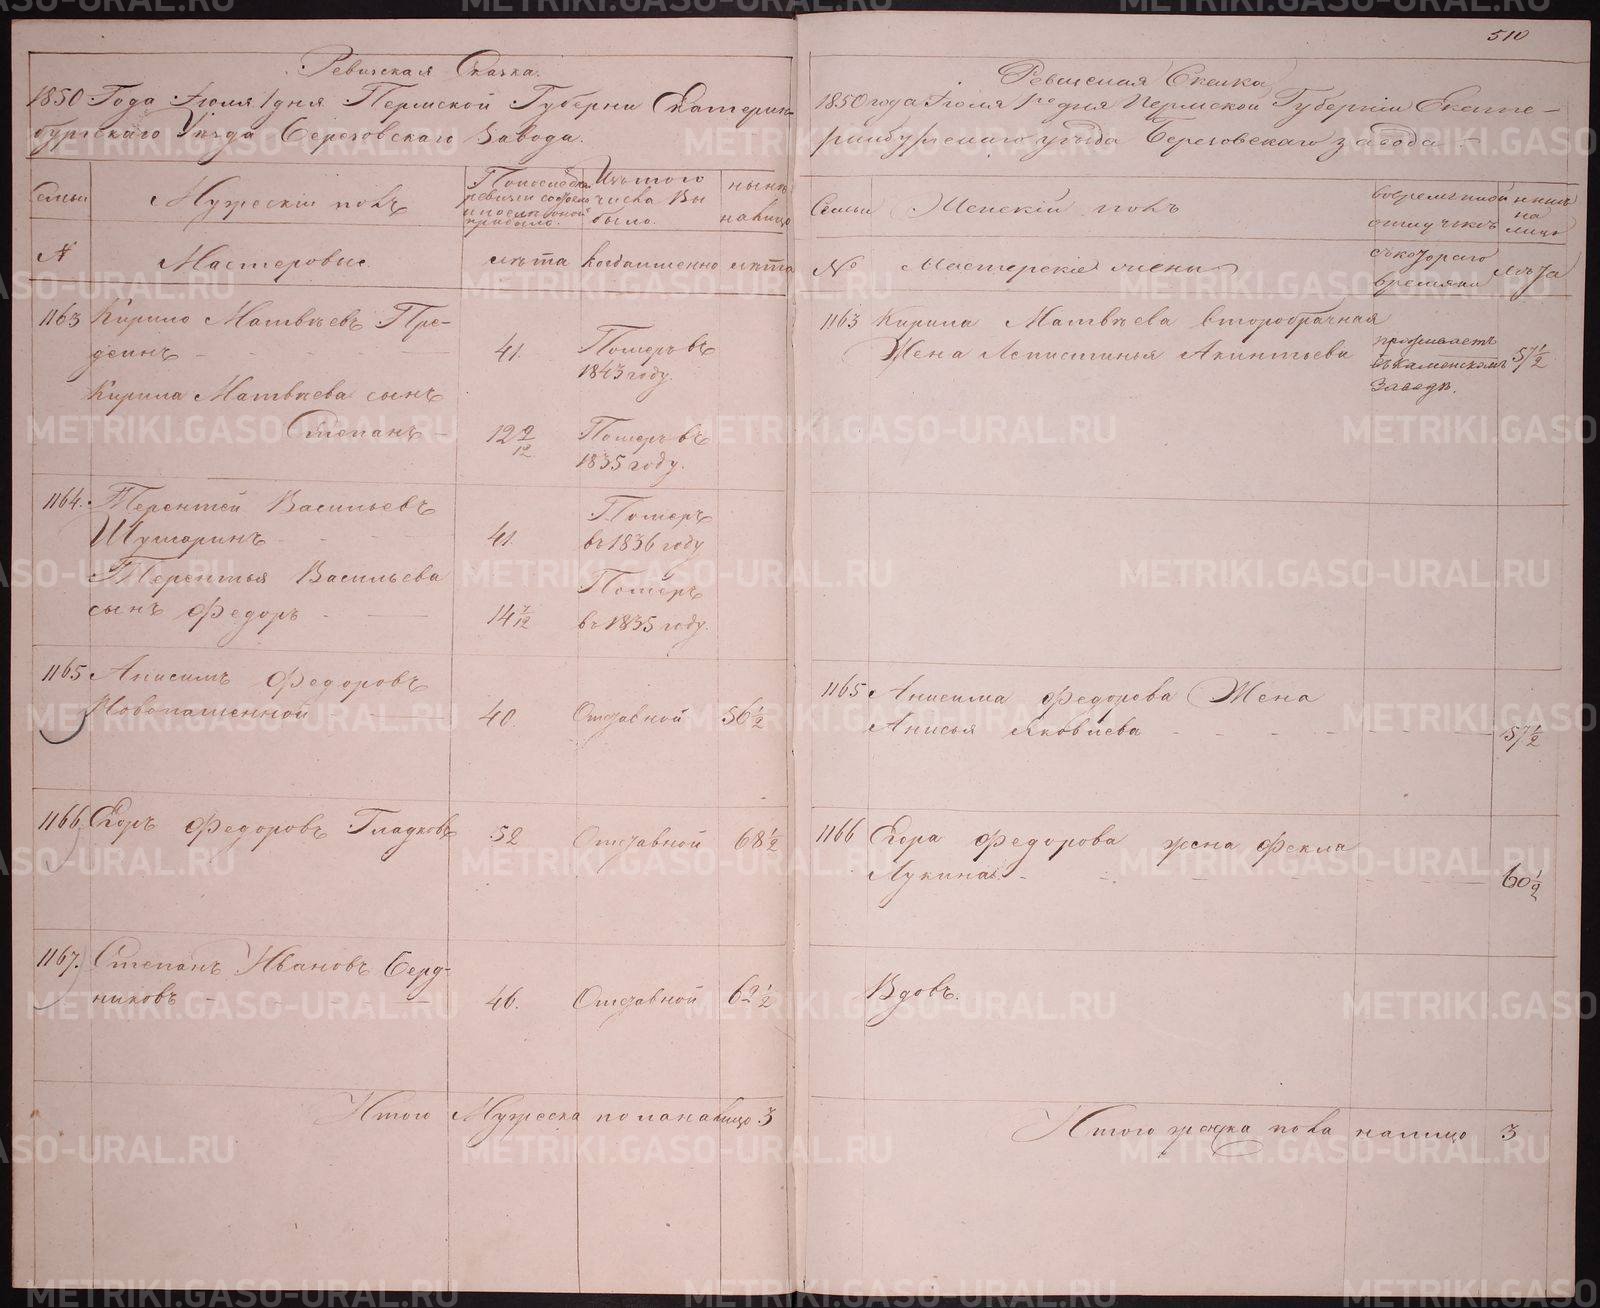 Ревизская Сказка.
1850 Года Іюля 1 дня Пермской Губерни Екатерин-
бургскаго Уезда Березовскаго Завода.
Семьи
Мужескій полъ
По последней
ревизіи состояло
и после оной
прибыло.
Изъ того
числа Вы
было.
ныне
налицо
№
Мастеровые
лѣта
Когда именно
лѣта
1163 Кирило Матвѣевъ Пре-
деинъ 41. Померъ въ
1843 году.
Кирила Матвѣева сынъ
Степанъ 12 9/12 Померъ въ
1835 году.
1164. Терентей Васильевъ
Шушаринъ 41. Померъ
въ 1836 году
Терентья Васильева
сынъ Федоръ 14 7/12 Померъ
въ 1835 году.
1165 Анисимъ Федоровъ
Новопашенной 40. Отставной 56 1/2
1166 Егоръ Федоровъ Гладковъ 52 Отставной 68 1/2
1167. Степанъ Ивановъ Берд-
никовъ 46. Отставной 62 1/2
Итого Мужеска пола налицо 3
510
Ревизская Сказка
1850 года Іюля 1го дня Пермской Губерніи Екате-
ринбургскаго уѣзда Березовскаго завода
Семьи
Женскій полъ
во временной
отлучкѣ
ныне
на
лицо
№
Мастерскіе жены
съ котораго
времяни
Лѣта
1163 Кирила Матвѣева второбрачная
Жена Лепистинья Акинтьева проживаетъ
въ Каменскомъ
Заводѣ. 57 1/2
1165 Анисима Федорова Жена
Анисья Яковлева 57 1/2
1166 Егора Федорова жена Фекла
Лукина 60 1/2
Вдовъ.
Итого женска пола налицо 3
METRIKI.GASO-URAL.RU